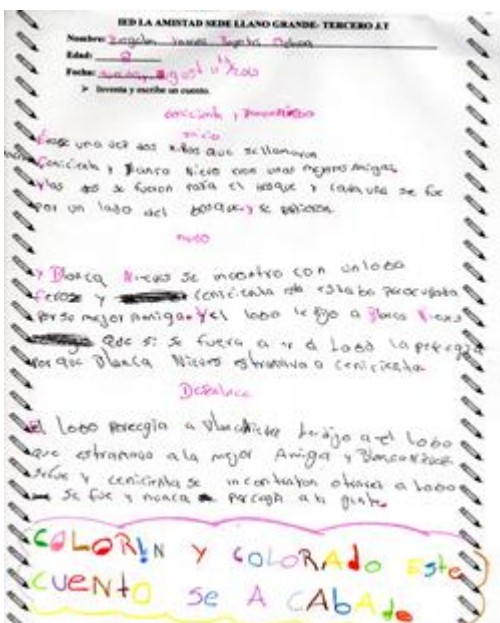 IED LA AMISTAD SEDE LLANO GRANDE- TERCERO J.T
Nombre:
Edad: 8
Fecha: agost
Inventa y escribe un cuento.
cenicienta y
inicio
Erase una vez dos niñas que se llamavan
Cenicienta y Blanca Nieve eran unas mejores Amigas
y las dos se fueron para el bosque y cada una se fue
por un lado del bosque y se
nudo
y Blanca Nieves se incontro con un lobo
Feroz y cenicienta estaba
por su mejor amiga y el lobo le dijo a Blanca Nieves
que si se fuera a el Lobo la
por que Blanca Nieves estrañava a cenicienta
Desenlace
El lobo a le dijo a el lobo
que estrañava a la mejor Amiga y
se fue y cenicienta se incontraron otraves a lobo
se fue y nunca a la gente
COLORIN Y COLORADO Este
CUENTO SE A CABAdo